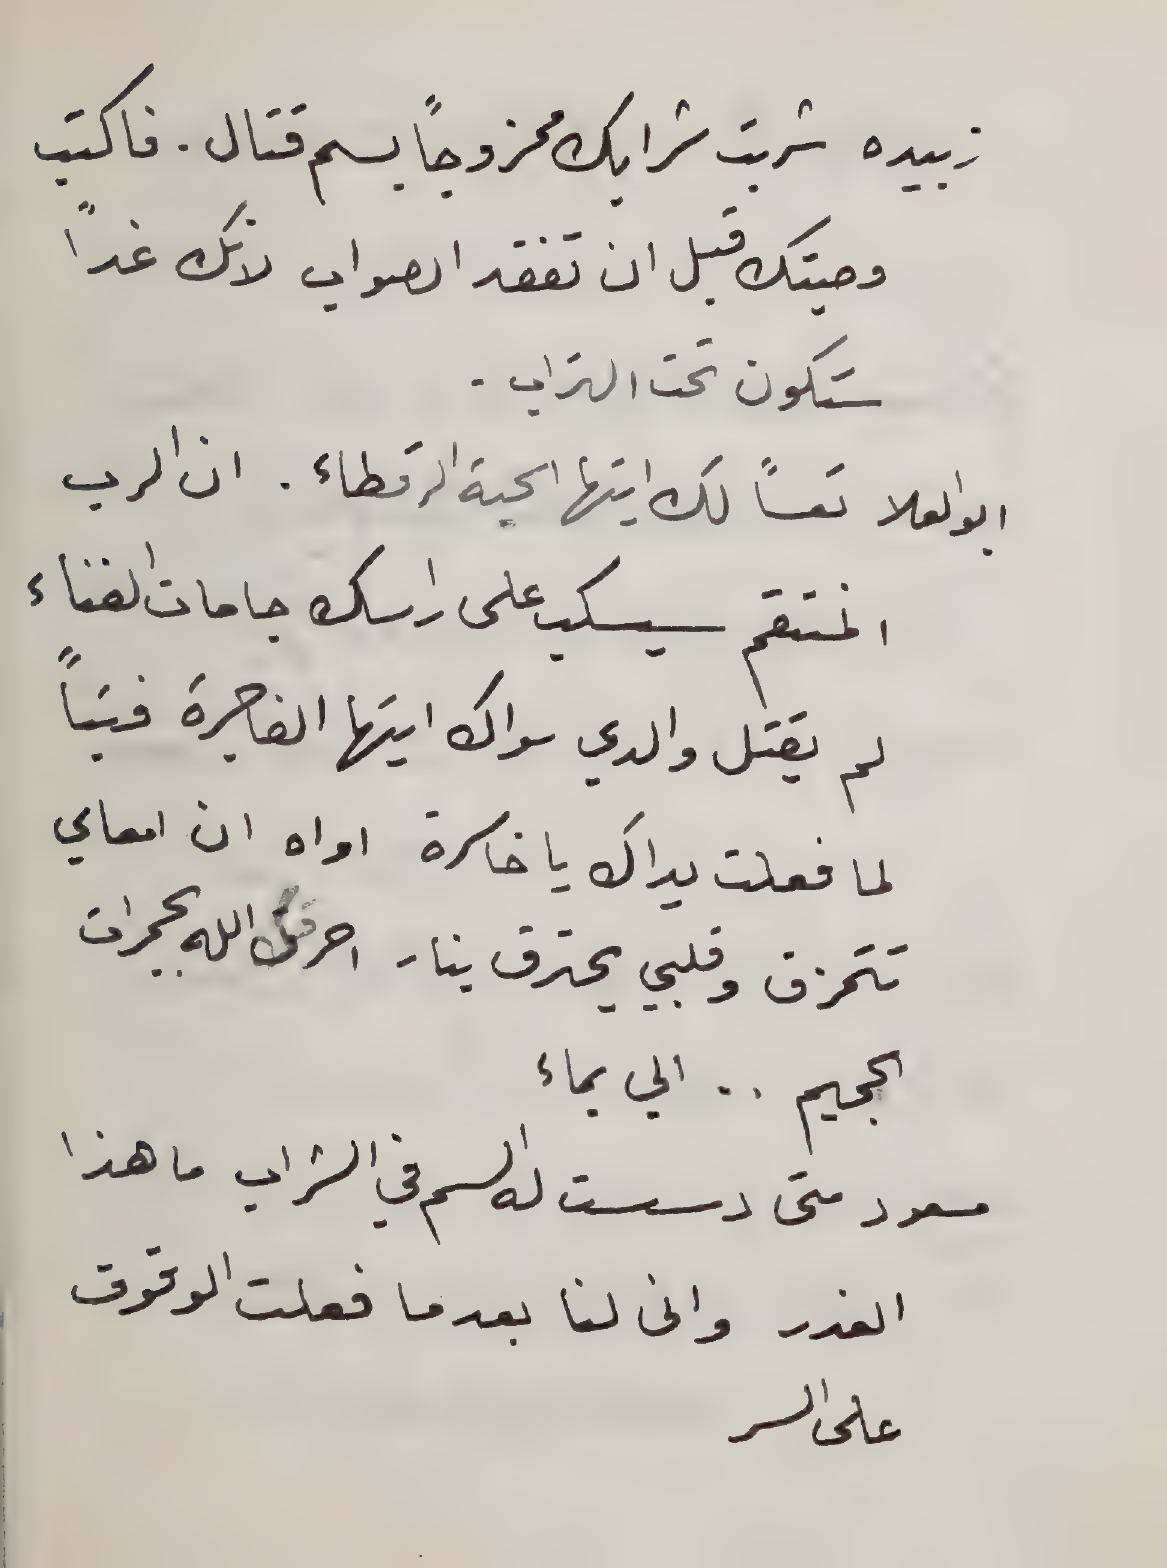 زبيده شربت شرابك ممزوجاً بسم قتال. فاكتب
وصيتك قبل ان تفقد الصواب لانك غداً
ستكون تحت التراب.
ابو العلا تعساً لك ايتها الحية الرقطاء. ان الرب
المنتقم سيسكب على راسك جامات الفناء
لم يقتل والدي سواك ايتها الفاجرة فتباً
لما فعلت يداك يا خاكرة اواه ان امعاي
تتمزق وقلبي يحترق بنار احرقك الله بجمرات
الجحيم .. الي بماء
مسعود متى دسست له السم في الشراب ما هذا
الغدر وانى لنا بعد ما فعلت الوقوف
على السر